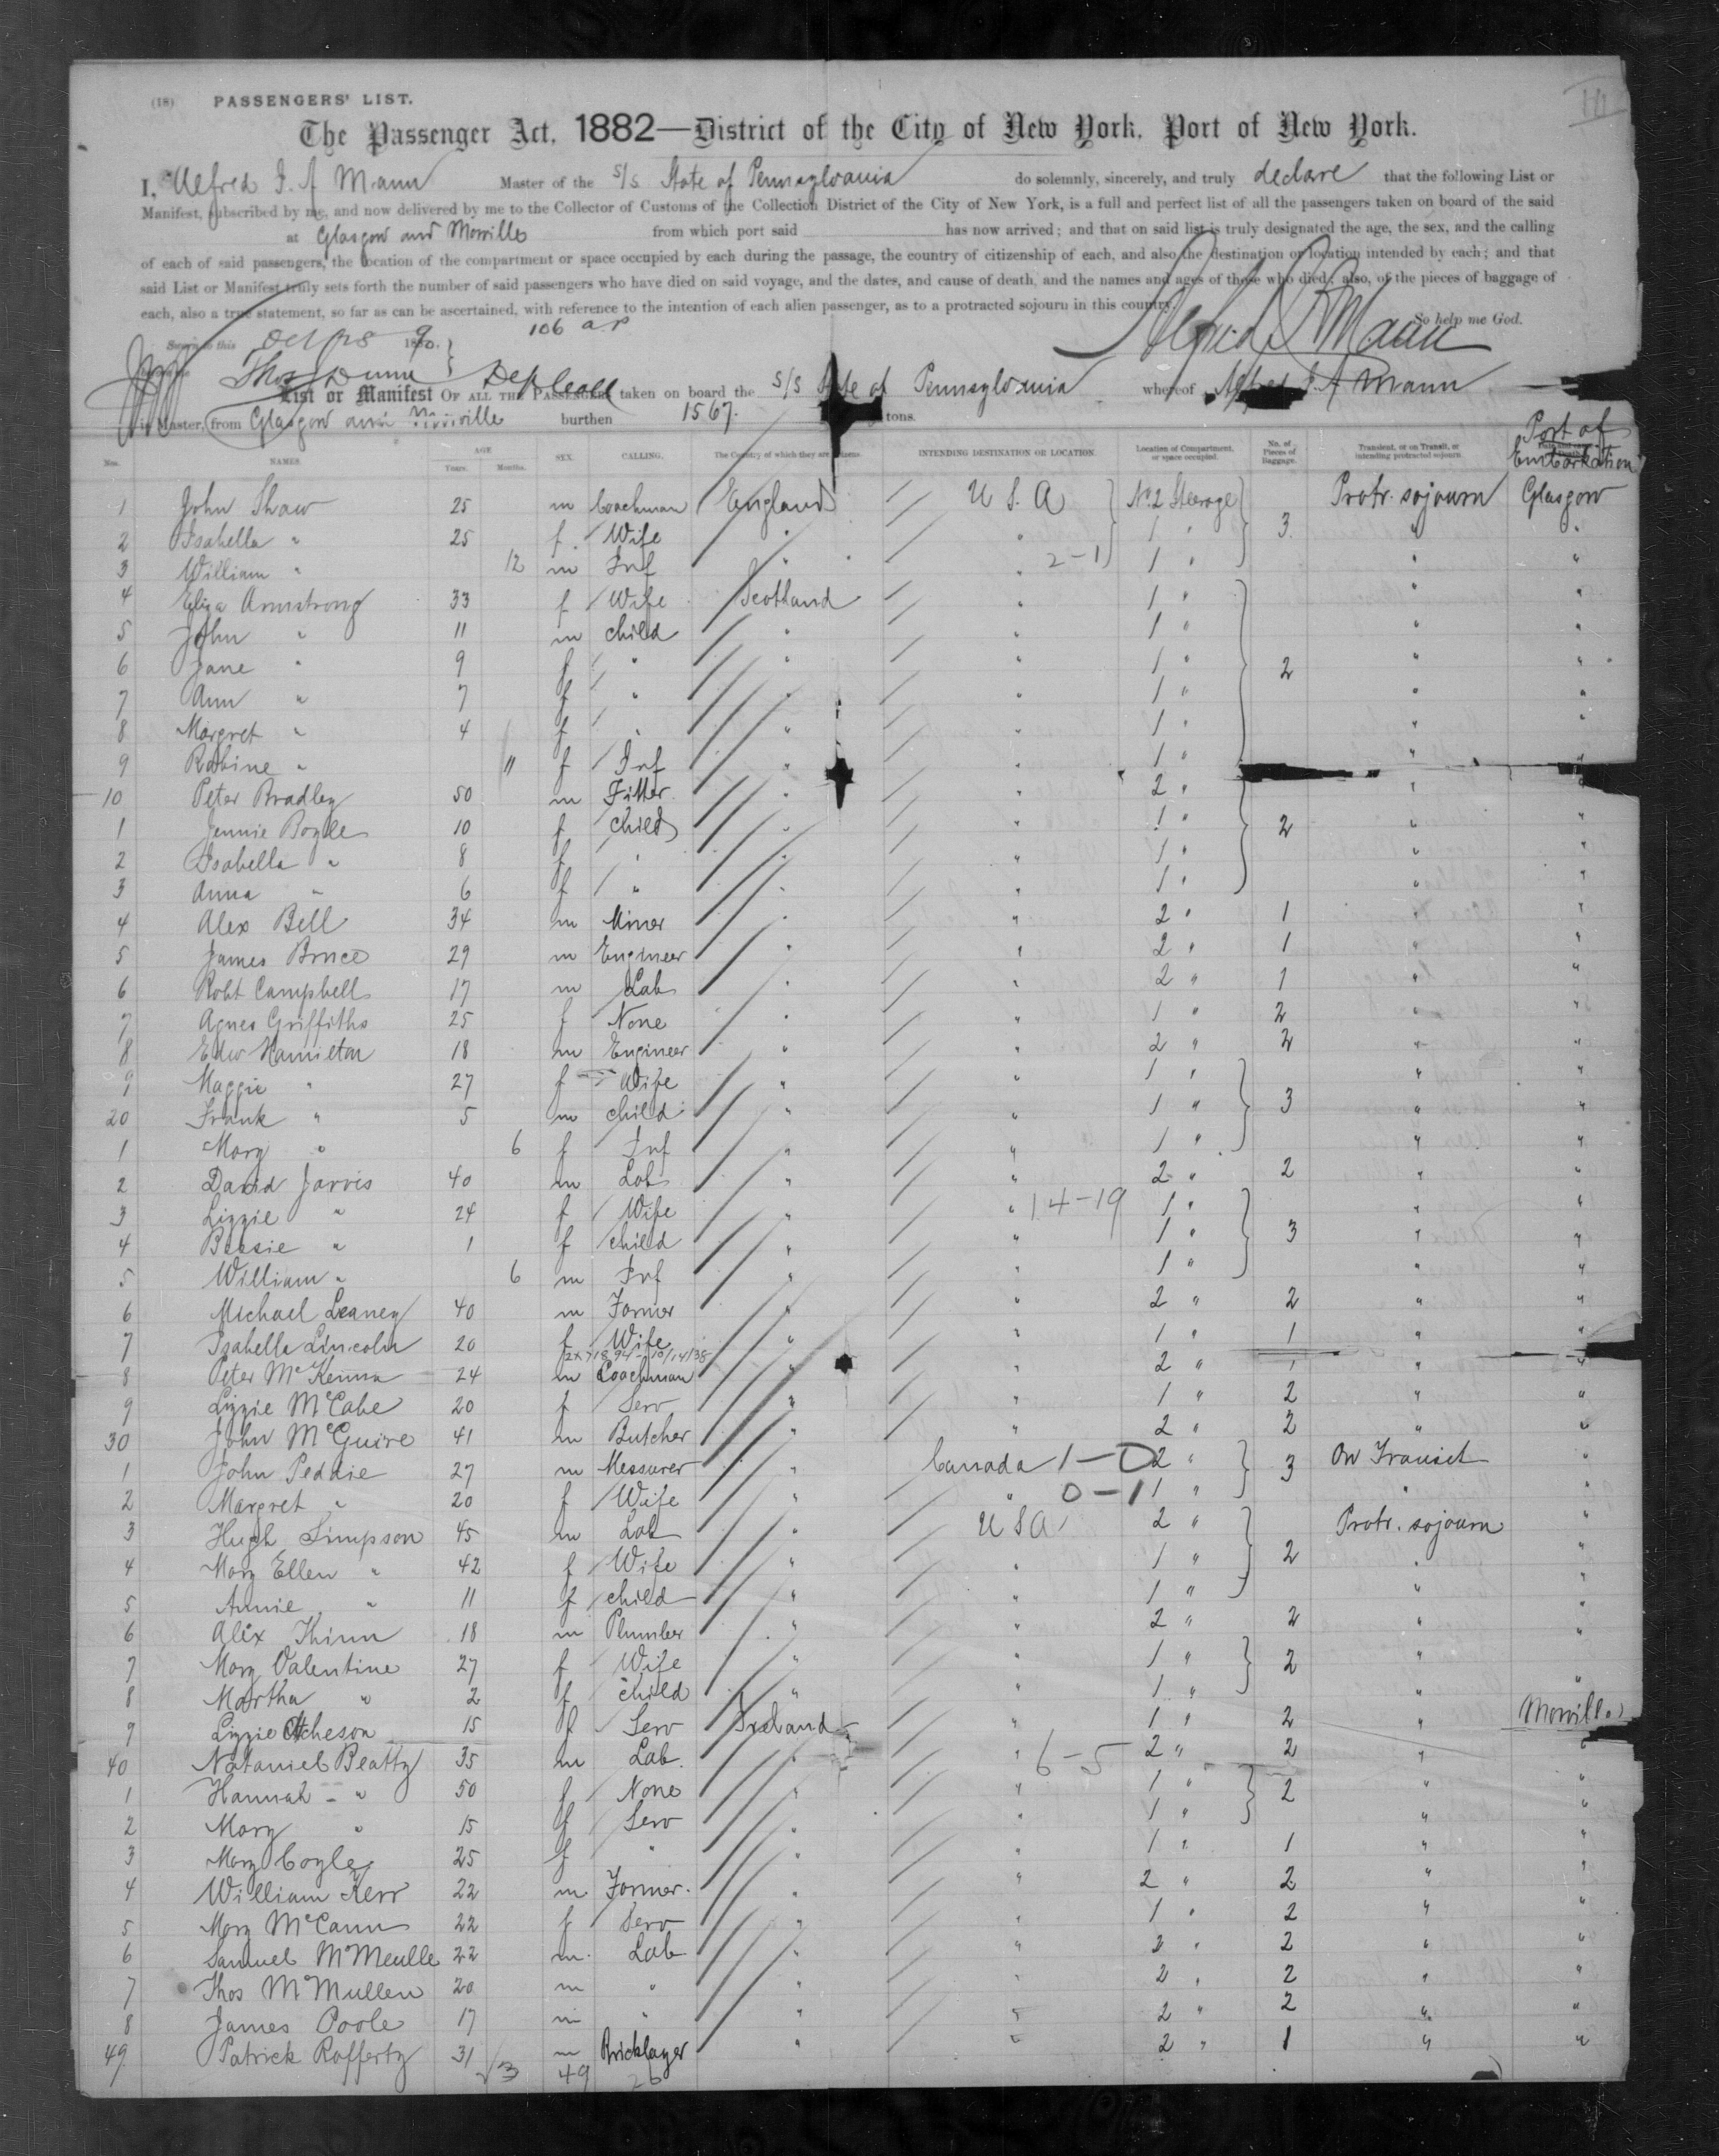 (18) PASSENGERS' LIST.
The Passenger Act, 1882—District of the City of New York, Port of New York.
I, Alfred J. A Mann Master of the S/S State of Pennsylvania do solemnly, sincerely, and truly declare that the following List or
Manifest, subscribed by me, and now delivered by me to the Collector of Customs of the Collection District of the City of New York, is a full and perfect list of all the passengers taken on board of the said
at Glasgow and Moville from which port said has now arrived; and that on said list is truly designated the age, the sex, and the calling
of each of said passengers, the location of the compartment or space occupied by each during the passage, the country of citizenship of each, and also the destination or location intended by each; and that
said List or Manifest truly sets forth the number of said passengers who have died on said voyage, and the dates, and cause of death, and the names and ages of those who died; also, of the pieces of baggage of
each, also a true statement, so far as can be ascertained, with reference to the intention of each alien passenger, as to a protracted sojourn in this country.
So help me God.
Sworn to this 1890. 106 a.p
Thos Dunn Dep Coll
List or Manifest OF ALL THE PASSENGERS taken on board the S/S State of Pennsylvania whereof Alfred J. A Mann
is Master, from Glasgow and Moville burthen 1567. tons.
Nos. NAMES. AGE Years. Months. SEX. CALLING. The Country of which they are Citizens. INTENDING DESTINATION OR LOCATION. Location of Compartment, or space occupied. No. of Pieces of Baggage. Transient, or on Transit, or intending protracted sojourn Port of Embarkation
1 John Shaw 25 m Coachman England U S. A No 2 Steerage 3. Protr. sojourn Glasgow
2 Isabella " 25 f. Wife " " 1 " " "
3 William " 12 m Inf " " 2-1 1 " " "
4 Eliza Armstrong 33 f Wife Scotland " 1 " " "
5 John " 11 m child " " 1 " " "
6 Jane " 9 f " " " 1 " 2 " "
7 Ann " 7 f " " " 1 " " "
8 Margret " 4 f " " " 1 " " "
9 Robine " 11 f Inf " " 1 " " "
10 Peter Bradley 50 m Fitter " " 2 " " "
1 Jennie Boyle 10 f child " " 1 " 2 " "
2 Isabella " 8 f " " " 1 " " "
3 Anna " 6 f " " " 1 " " "
4 Alex Bell 34 m Miner " " 2 " 1 " "
5 James Bruce 29 m Engineer " " 2 " 1 " "
6 Robt Campbell 17 m Lab " " 2 " 1 " "
7 Agnes Griffiths 25 f None " " 1 " 2 " "
8 Edw Hamilton 18 m Engineer " " 2 " 2 " "
9 Maggie " 27 f Wife " " 1 " " "
20 Frank " 5 m child " " 1 " 3 " "
1 Mary " 6 f Inf " " 1 " " "
2 David Jarvis 40 m Lab " " 2 " 2 " "
3 Lizzie " 24 f Wife " " 14-19 1 " " "
4 Bessie " 1 f child " " 1 " 3 " "
5 William " 6 m Inf " " 1 " " "
6 Michael Leaney 40 m Farmer " " 2 " 2 " "
7 Isabella Lincoln 20 f Wife " " 1 " 1 " "
8 Peter McKenna 24 m Coachman " " 2 " 1 " "
9 Lizzie McCabe 20 f Serv " " 1 " 2 " "
30 John McGuire 41 m Butcher " " 2 " 2 " "
1 John Peddie 27 m Messurer " Canada 1-0 2 " 3 On Transit "
2 Margret " 20 f Wife " " 0-1 1 " " "
3 Hugh Simpson 45 m Lab " U S A 2 " Protr. sojourn "
4 Mary Ellen " 42 f Wife " " 1 " 2 " "
5 Annie " 11 f child " " 1 " " "
6 Alix Thinn 18 m Plumber " " 2 " 2 " "
7 Mary Valentine 27 f Wife " " 1 " 2 " "
8 Martha " 2 f child " " 1 " " "
9 Lizzie Acheson 15 f Serv Ireland " 1 " 2 " Moville
40 Nataniel Beatty 35 m Lab. " " 6-5 2 " 2 " "
1 Hannah " 50 f None " " 1 " 2 " "
2 Mary " 15 f Serv " " 1 " " "
3 Mary Coyle 25 f " " " 1 " 1 " "
4 William Kerr 22 m. Farmer. " " 2 " 2 " "
5 Mary McCann 22 f Serv " " 1 " 2 " "
6 Samuel McMeulle 22 m. Lab " " 2 " 2 " "
7 Thos McMullen 20 m " " " 2 " 2 " "
8 James Poole 17 m " " " 2 " 2 " "
49 Patrick Rafferty 31 m Bricklayer " " 2 " 1 " "
3 49 26